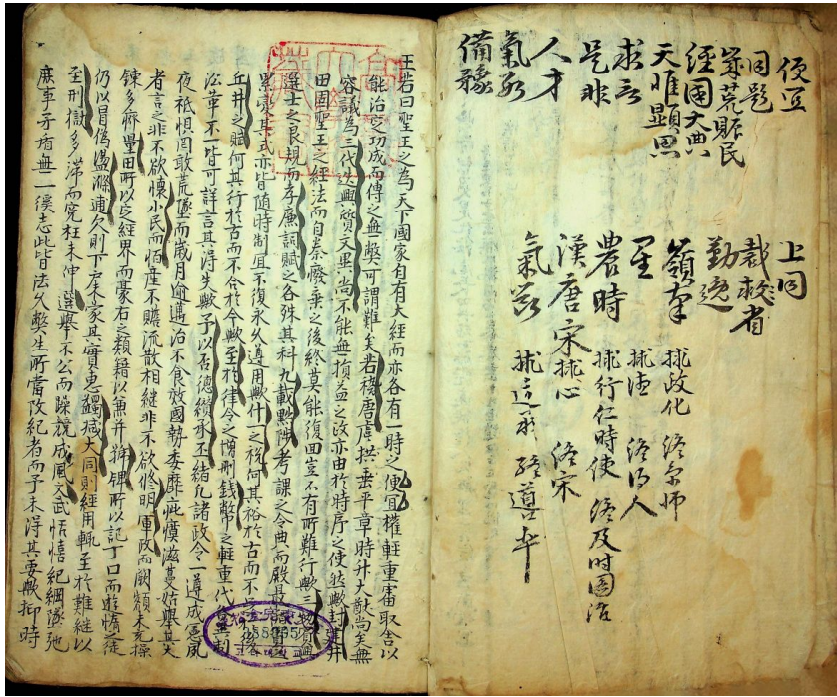 便宜
同題
荒賑民
經國大典
天唯顯思
求言
是非
人才
氣
備豫
上同
裁 省
勤逸
農時 行仁時使 及時
漢唐宋 心 宋
王若曰聖王之為天下國家自有大經而亦各有一時之便宜權輕重審取舍以
能治定功成而傳之無弊可謂難矣若稽唐虞拱垂平章時升大猷尚矣無
容議為三代迭興質文異尚不能無損益之政亦由於時序之使然歟封建井
田固聖王之經法而自秦廢棄之後終莫能復回豈不有所難行歟三物賓
選士之良規而孝廉詞賦之各殊其科九載黜陟考課之令典而殿最
其式亦皆隨時制宜不復永久遵用歟什一之稅何其裕於古而不
丘井之賦何其行於古而不合於今歟至於律令之 刑錢幣之輕重代各異制
沿革不一皆可詳言其得失歟予以否德纘承丕緒凡諸政令一遵成憲夙
夜祗惧罔敢荒墜而歲月逾邁治不食效國勢委靡疵瘼滋蔓姑舉其大
者言之非不欲懷小民而恒產不贍流散相繼非不欲修明軍政而闕額未充操
鍊多 量田所以定經界而豪右之類籍以兼并號牌所以記丁口而游惰之徒
仍以冒偽盪滌逋欠則下戶未蒙其實惠蠲减大同則經用輒至於難継以
至刑獄多滯而寃枉未伸選舉不公而躁競成風文武恬憘紀綱遂弛
庶事矛盾無一 志此皆法久弊生所當改紀者而予未得其要歟抑時